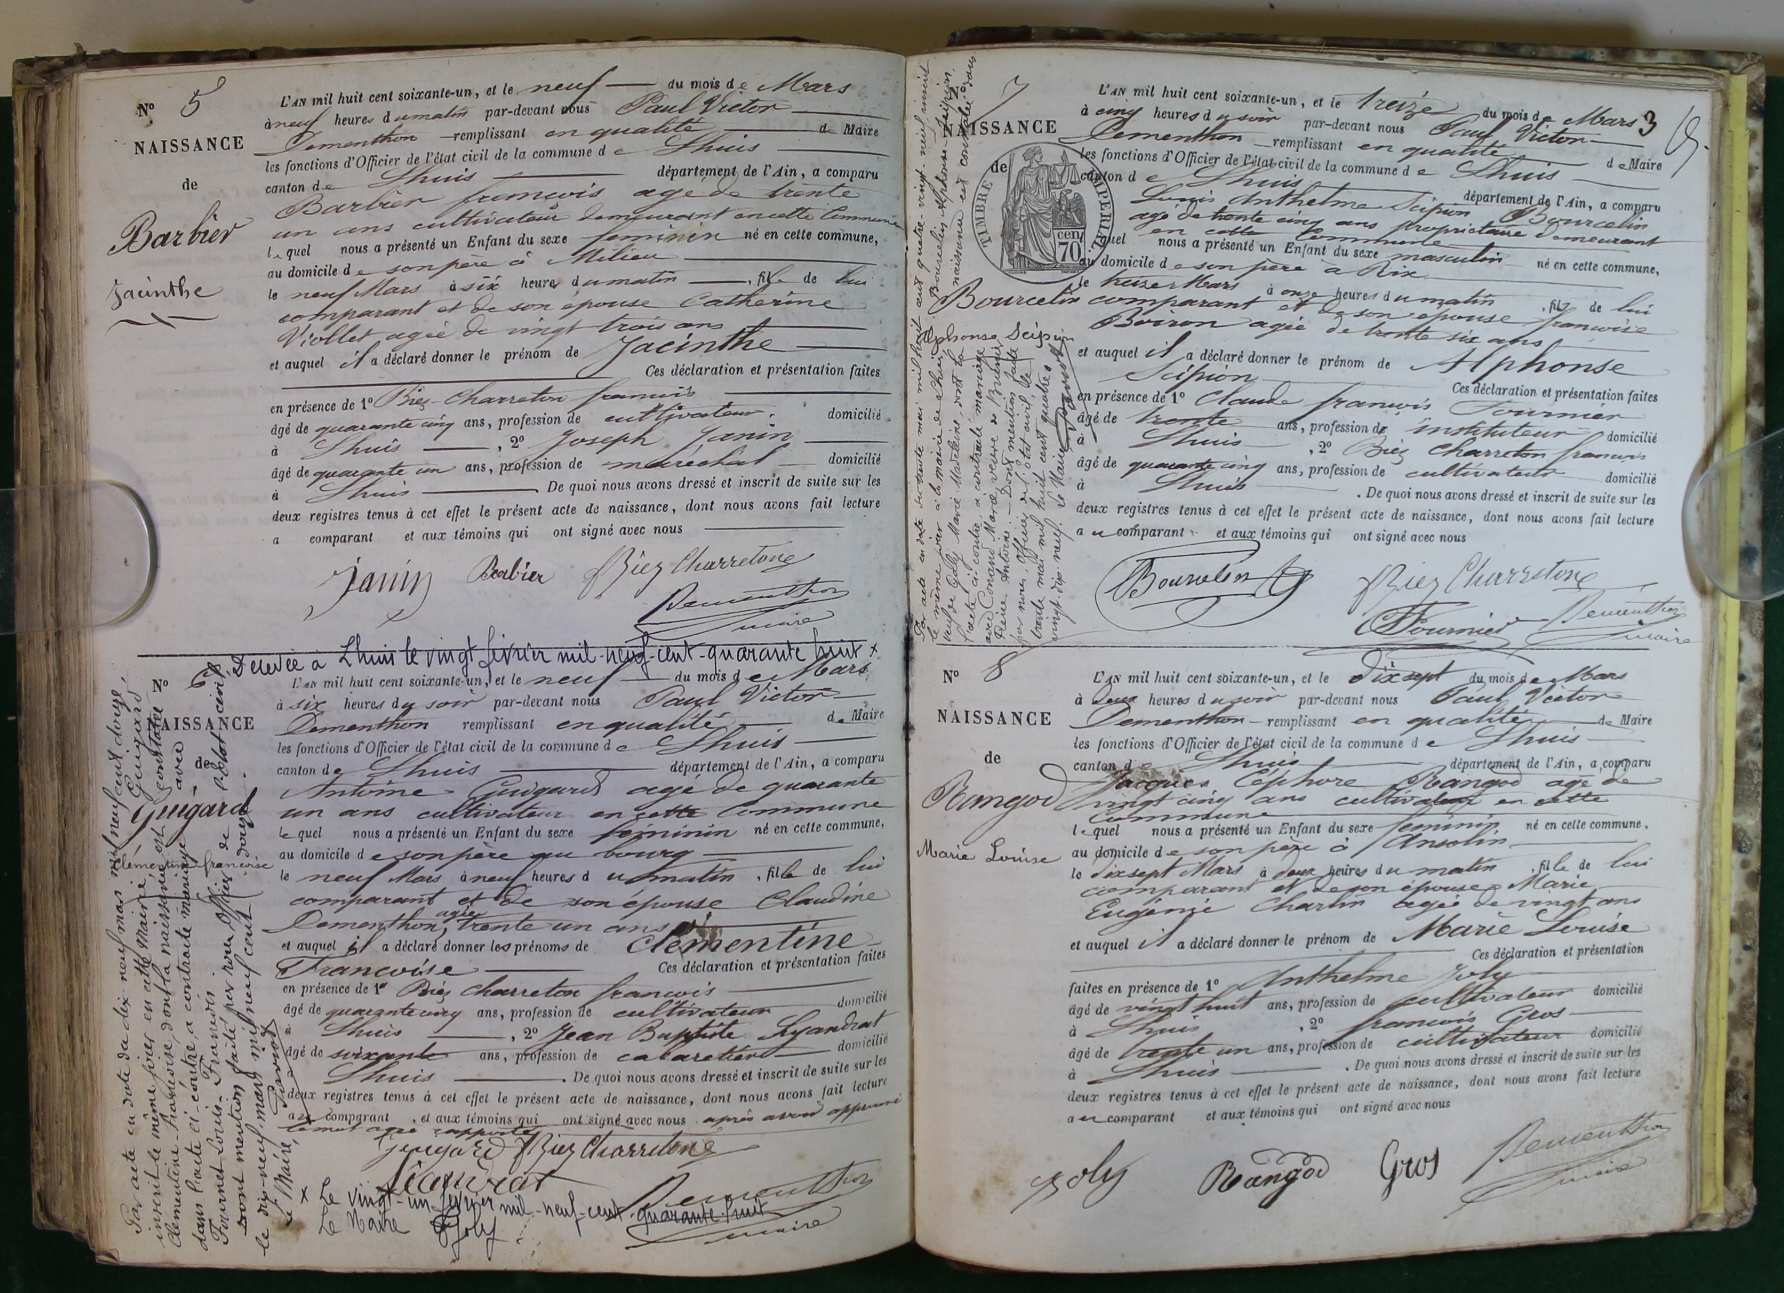 N° 5
NAISSANCE
de
Barbier
Jacinthe
L'AN mil huit cent soixante-un, et le neuf du mois de Mars
à neuf heures du matin par-devant nous Paul Victor
Dementhon remplissant en qualité de Maire
les fonctions d'Officier de l'état civil de la commune de Lhuis
canton de Lhuis département de l'Ain, a comparu
Barbier françois agé de trente
un ans cultivateur demeurant en cette Commune
lequel nous a présenté un Enfant du sexe feminin né en cette commune,
au domicile de son père à Milieu
le neuf Mars à six heures du matin, fille de lui
comparant et de son épouse Catherine
Viollet agée de vingt trois ans
et auquel il a déclaré donner le prénom de Jacinthe
Ces déclaration et présentation faites
en présence de 1° Biez-Charreton francois
âgé de quarante cinq ans, profession de cultivateur, domicilié
à Lhuis, 2° Joseph Janin
âgé de quarante un ans, profession de maréchal domicilié
à Lhuis De quoi nous avons dressé et inscrit de suite sur les
deux registres tenus à cet effet le présent acte de naissance, dont nous avons fait lecture
a comparant et aux témoins qui ont signé avec nous
Janin Barbier Biez Charretone
Dementhon
maire
Décédée à Lhuis le vingt février mil-neuf-cent-quarante huit x
N° 6
NAISSANCE
de
Guigard
Clémentine françoise
L'AN mil huit cent soixante-un, et le neuf du mois de Mars
à six heures du soir par-devant nous Paul Victor
Dementhon remplissant en qualité de Maire
les fonctions d'Officier de l'état civil de la commune de Lhuis
canton de Lhuis département de l'Ain, a comparu
Antoine Guigard agé de quarante
un ans cultivateur en cette Commune
lequel nous a présenté un Enfant du sexe feminin né en cette commune,
au domicile de son père au bourg
le neuf Mars à neuf heures du matin, fille de lui
comparant et de son épouse Claudine
Dementhon, agée trente un ans
et auquel il a déclaré donner les prénoms de Clémentine
Francoise Ces déclaration et présentation faites
en présence de 1° Biez Charreton francois
âgé de quarante cinq ans, profession de cultivateur domicilié
à Lhuis, 2° Jean Baptiste
âgé de soixante ans, profession de cabaretier domicilié
Lhuis. De quoi nous avons dressé et inscrit de suite sur les
deux registres tenus à cet effet le présent acte de naissance, dont nous avons fait lecture
au comparant, et aux témoins qui ont signé avec nous après avoir approuvé
le mot agée rapporté
Guigard Biez Charretone
Dementhon
maire
x Le vingt-un-février mil-neuf-cent-quarante huit
Le Maire Joly
Par acte en date du dix neuf mars mil neuf cent douze,
inscrit le même jour en cette Mairie, Guigard
Clémentine-Françoise, dont la naissance est constatée
dans l'acte ci-contre a contracté mariage avec
Tournet Louis-Francois
Dont mention faite par nous Officier de l'état civil
le dix-neuf mars mil neuf cent douze.
Le Maire,
N° 7
NAISSANCE
de
TIMBRE IMPERIAL
70 cen
Bourcelin
Alphonse Scipion
3
L'AN mil huit cent soixante-un, et le treize du mois de Mars
à cinq heures du soir par-devant nous Paul Victor
Dementhon remplissant en qualité de Maire
les fonctions d'Officier de l'état civil de la commune de Lhuis
canton de Lhuis département de l'Ain, a comparu
Louis Anthelme Scipion Bourcelin
agé de trente cinq ans propriétaire demeurant
en cette Commune
lequel nous a présenté un Enfant du sexe masculin né en cette commune,
au domicile de son père à Rix
le treize Mars à onze heures du matin, fils de lui
comparant et de son épouse françoise
Boiron agée de trente six ans
et auquel il a déclaré donner le prénom de Alphonse
Scipion Ces déclaration et présentation faites
en présence de 1° Claude françois Fournier
âgé de trente ans, profession de instituteur domicilié
à Lhuis, 2° Biez Charreton francois
âgé de quarante cinq ans, profession de cultivateur domicilié
à Lhuis. De quoi nous avons dressé et inscrit de suite sur les
deux registres tenus à cet effet le présent acte de naissance, dont nous avons fait lecture
au comparant et aux témoins qui ont signé avec nous
Bourcelin Biez Charretone
Fournier Dementhon
maire
Par acte en date du trente mai mil huit cent quatre-vingt-neuf inscrit
le même jour à la mairie de Bourcelin Alphonse-Scipion,
veuf de Joly Marie Madeleine, dont la naissance est constatée dans
l'acte ci-contre a contracté mariage
avec
Dont mention faite
par nous officier de l'état civil le
trente mai mil huit cent quatre
vingt dix neuf. Le Maire
N° 8
NAISSANCE
de
Rangod
Marie Louise
L'AN mil huit cent soixante-un, et le dix sept du mois de Mars
à deux heures du soir par-devant nous Paul Victor
Dementhon remplissant en qualité de Maire
les fonctions d'Officier de l'état civil de la commune de Lhuis
canton de Lhuis département de l'Ain, a comparu
Jacques Céphore Rangod agé de
vingt cinq ans cultivateur en cette
commune
lequel nous a présenté un Enfant du sexe feminin né en cette commune,
au domicile de son père à Ansolin
le dix sept Mars à deux heures du matin, fille de lui
comparant et de son épouse Marie
Eugénie Charlin agée de vingt ans
et auquel il a déclaré donner le prénom de Marie Louise
Ces déclaration et présentation
faites en présence de 1° Anthelme Joly
âgé de vingt huit ans, profession de cultivateur domicilié
à Lhuis, 2° francois Gros
âgé de trente un ans, profession de cultivateur domicilié
à Lhuis. De quoi nous avons dressé et inscrit de suite sur les
deux registres tenus à cet effet le présent acte de naissance, dont nous avons fait lecture
au comparant et aux témoins qui ont signé avec nous
Joly Rangod Gros Dementhon
maire